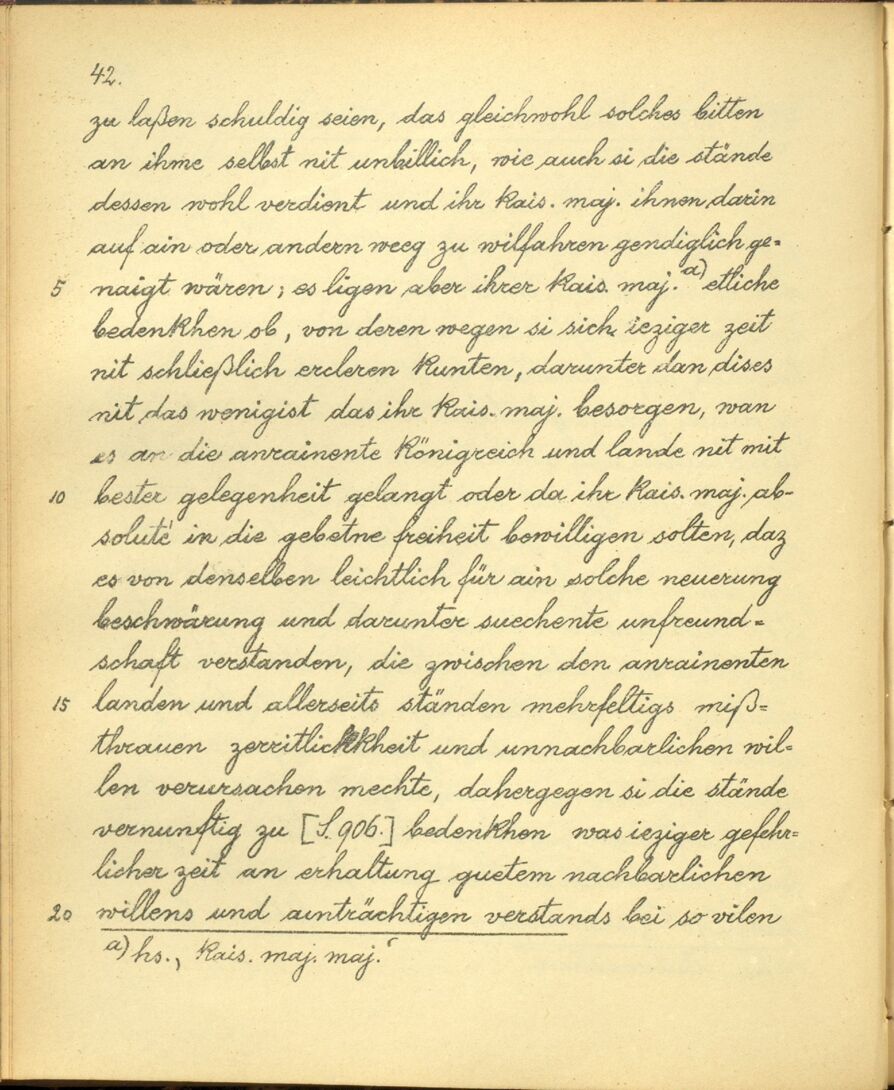 42.
zu laßen schuldig seien, das gleichwohl solches bitten
an ihme selbst nit unbillich, wie auch si die stände
dessen wohl verdient und ihr kais. maj. ihnen darin
auf ain oder andern weeg zu wilfahren gendiglich ge=
5 naigt wären; es ligen aber ihrer kais. maj. a) etliche
bedenkhen ob, von deren wegen si sich ieziger zeit
nit schließlich ercleren kunten, darunter dan dises
nit das wenigist das ihr kais. maj. besorgen, wan
es an die anrainente königreich und lande nit mit
10 bester gelegenheit gelangt oder da ihr kais. maj. ab-
soluté in die gebetne freiheit bewilligen solten, daz
es von denselben leichtlich für ain solche neuerung
beschwärung und darunter suechente unfreund=
schaft verstanden, die zwischen den anrainenten
15 landen und allerseits ständen mehrfeltigs miß=
thrauen zerritlichkheit und unnachbarlichen wil=
len verursachen mechte, dahergegen si die stände
vernunftig zu [S. 906.] bedenkhen was ieziger gefehr=
licher zeit an erhaltung guetem nachbarlichen
20 willens und ainträchtigen verstands bei so vilen
a) hs. „kais. maj. maj.“